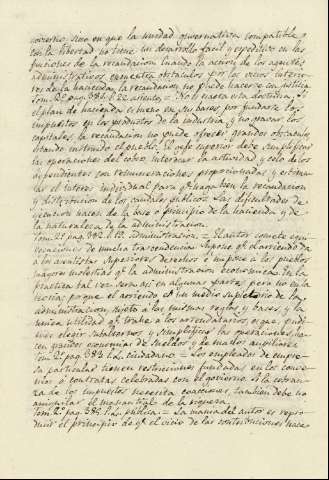 govierno sino en que la unidad observativa compatible
con la libertad no tiene un desarrollo facil y espeditivo en las
funciones de la recaudacion. Cuando la accion de los agentes
administrativos encuentra obstaculos por los vicios interio-
res de la hacienda, la recaudacion no puede hacerse con justicia.
el plan de hacienda es bueno en sus bases, por fundarse los
impuestos en los productos de la industria, y no gravar los
capitales, la recaudacion no puede ofrecer grandes obstaculos
estando instruido el pueblo. El gefe superior debe simplificar
las operaciones del cobro, interesar la actividad y celo de los
dependientes con remuneraciones proporcionadas y estimu-
lar el interes individual para qe. hagan bien la recaudacion
y distribucion de los caudales publicos. Las dificultades de
genero nacen de la base o principio de la hacienda y de
la naturaleza de la administracion.
Tom. 2º pag. 382 administracion = El autor comete equi-
vocaciones de mucha trascendencia. Supone qe. el arriendo da
a los asentistas superiores derechos e impone a los pueblos
mayores molestias qe. la administracion economica. En la
practica tal vez sera asi en algunas partes pero no en la
teoria; porque el arriendo es un medio supletorio de la
administracion, sujeto a las mismas reglas y bases, y la
unica utilidad qe. trahe a los arrendatarios es que pudi-
endo elegir subalternos, y simplificar las operaciones, ha-
cen grandes economias de sueldos y de manos auxiliares.
Tom. 2º pag. 382 ciudadano = Los empleados de empre-
sa particular tienen restricciones fundadas en los conve-
nios o contratas celebradas con el govierno. Si la cobran-
za de los impuestos necesita coacciones, tambien debe no
aniquilar el manantial de la riqueza.
Tom. 2º pag. 385 publica = La mania del autor es repro-
ducir el principio de qe. el vicio de las contribuciones nace